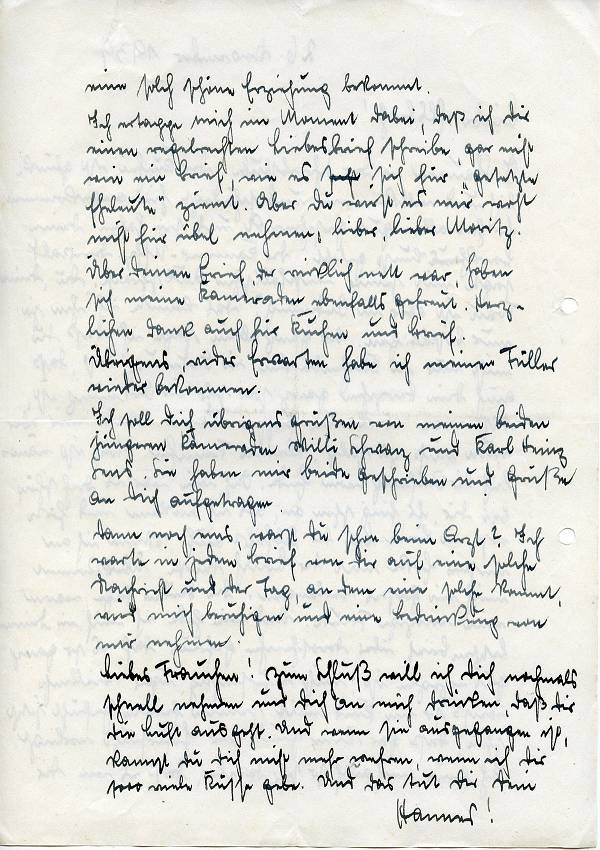 eine solch schöne Erziehung bekommt.
Ich ertappe mich im Moment dabei, daß ich Dir
einen regelrechten Liebesbrief schreibe, gar nicht
wie ein Brief, wie es sich für "gesetzte
Eheleute" ziemt. Aber Du wirst es mir wohl
nicht für übel nehmen, lieber, lieber Moritz.
Über deinen Brief, der wirklich nett war, haben
sich meine Kameraden ebenfalls gefreut. Herz-
lichen Dank auch für Kuchen und Brief.
Übrigens, wider Erwarten habe ich meinen Füller
wieder bekommen.
Ich soll Dich übrigens grüßen von meinen beiden
jüngeren Kameraden Willi Schwarz und Karl Heinz
Sie haben mir beide geschrieben und Grüße
an Dich aufgetragen
Dann noch eins, warst Du schon beim Arzt? Ich
warte in jedem Brief von Dir auf eine solche
Nachricht und der Tag, an dem eine solche kommt,
wird mich beruhigen und eine Bedrückung von
mir nehmen.
Liebes Frauchen! Zum Schluß will ich Dich nochmals
schnell nehmen und Dich an mich drücken, daß Dir
die Luft ausgeht. Und wenn sie ausgegangen ist,
kannst Du Dich nicht mehr wehren, wenn ich Dir
sooo viele Küsse gebe. Und das tut Dir Dein
Hannes!